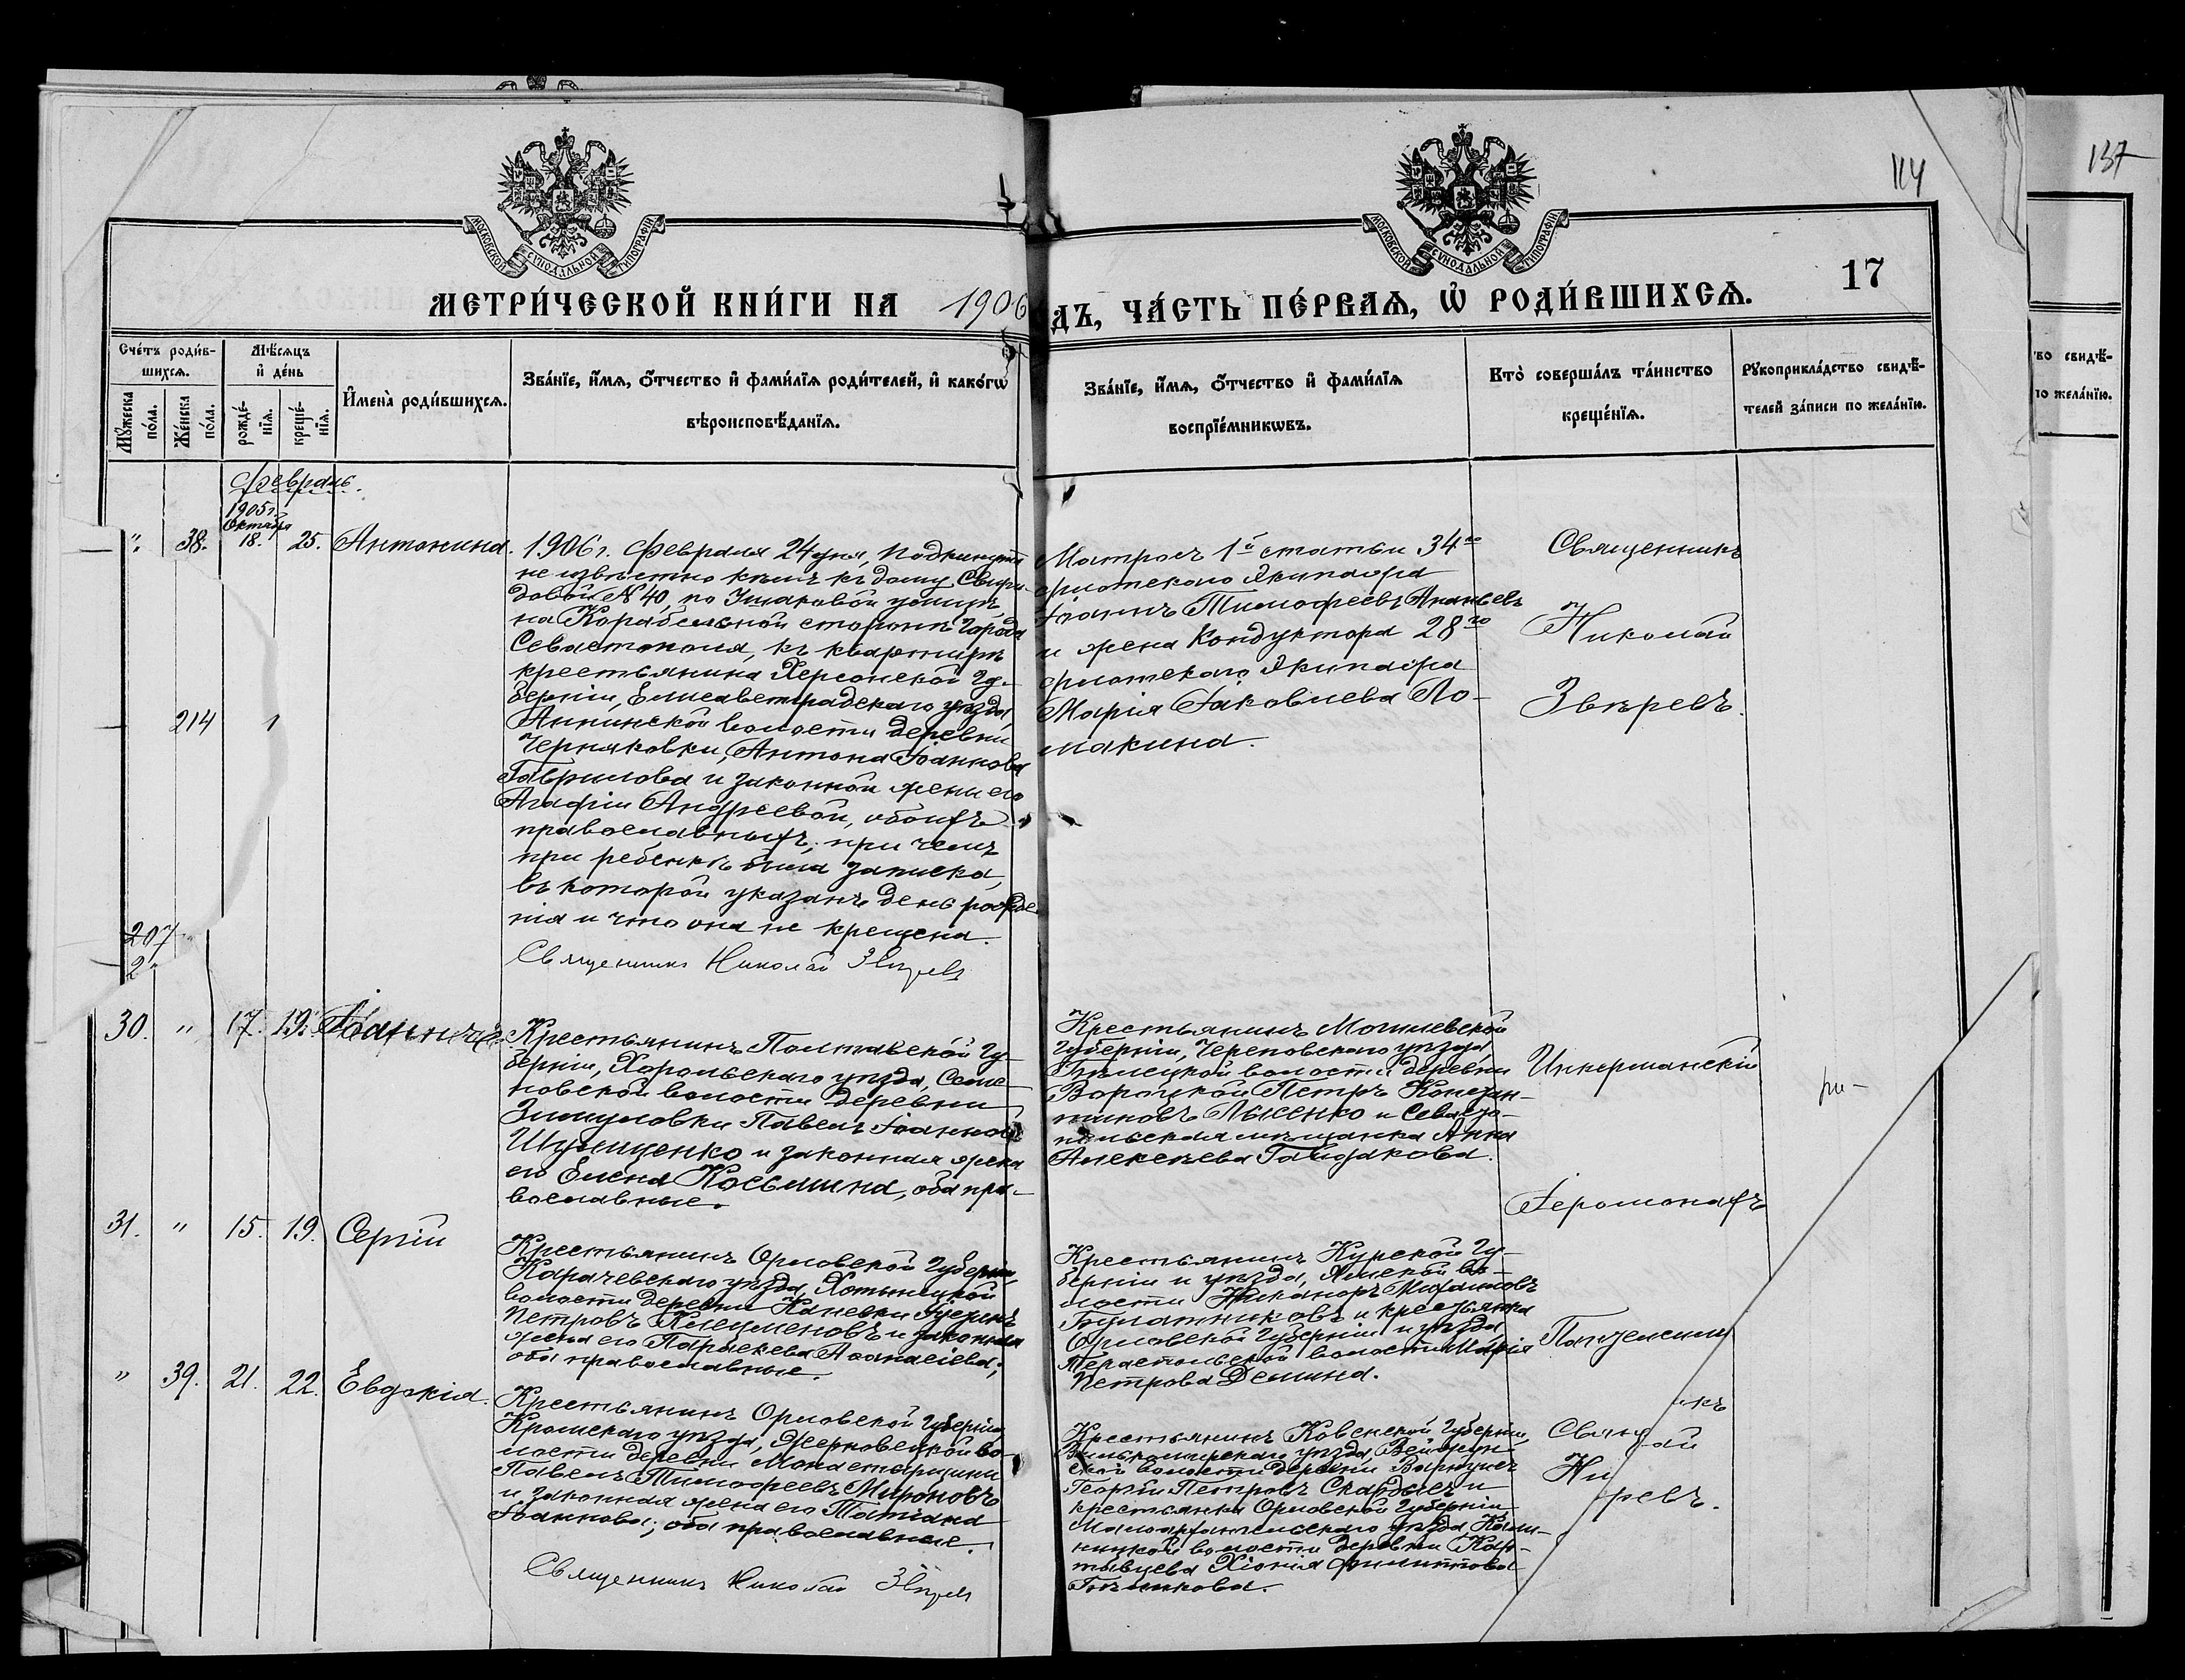 137
114
МОСКОВСКОЙ СѴНОДАЛЬНОЙ ТИПОГРАФІИ
МОСКОВСКОЙ СѴНОДАЛЬНОЙ ТИПОГРАФІИ
МЕТРИ́ЧЕСКОЙ КНИ́ГИ НА 1906
ДЪ, ЧА́СТЬ ПЕ́РВАѦ, Ѡ҆ РОДИ́ВШИХСѦ. 17
Сче́тъ роди́в-
шихсѧ.
Мꙋ́жеска по́ла.
Же́нска по́ла.
Мѣ́сѧцъ
и҆ де́нь
рожде́-
нїѧ.
креще́-
нїѧ.
И҆мена̀ роди́вшихсѧ.
Зва́нїе, и҆́мѧ, ѻ҆́тчество и҆ фамѝлїѧ роди́телей, и҆ како́гѡ
вѣроисповѣ́данїѧ.
Зва́нїе, и҆́мѧ, ѻ҆́тчество и҆ фамѝлїѧ
воспрїе́мникѡвъ.
Кто̀ соверша́лъ та́инство
креще́нїѧ.
Рꙋкоприкла́дство свидѣ́-
телей за́писи по жела́нїю.
во свидѣ́-
по жела́нїю.
Февраль.
1905г.
Октября
" 38. 18. 25. Антонина.
1906г. Февраля 24 дня, подкинута
не извѣстно кѣмъ къ дому Свири-
довой № 40, по Ушаковой улицѣ,
на Корабельной сторонѣ города
Севастополя, къ квартирѣ
крестьянина Херсонской Гу-
берніи, Елисаветградскаго уѣзда,
Аннинской волости деревни
Черняховки, Антона Іоаннова
Гаврилова и законной жены его
Агафіи Андреевой, обоихъ
православныхъ; при чемъ
при ребенкѣ была записка,
въ которой указанъ день рожде-
нія и что она не крещена.
Священникъ Николай Звѣревъ
Матросъ 1й статьи 34го
флотскаго Экипажа
Іоаннъ Тимофеевъ Ананьевъ
и жена Кондуктора 28го
флотскаго Экипажа
Марія Іаковлева Ло-
макина.
Священникъ
Николай
Звѣревъ.
214 1
207
2
30. " 17. 19. Іоаннъ
Крестьянинъ Полтавской Гу-
берніи, Хорольскаго уѣзда, Семе-
новской волости деревни
Павелъ Іоанновъ
и законная жена
его Елена Косьмина, оба пра-
вославные.
Крестьянинъ Могилевской
Губерніи, уѣзда,
волости деревни
Петръ Констан-
тиновъ Лысенко и Севасто-
польская мѣщанка Анна
Алексѣева Гайдакова.
Инкерманскій
ри-
Іеромонахъ
31. " 15. 19. Сергій
Крестьянинъ Орловской Губерніи,
Карачевскаго уѣзда, Хотынецкой
волости деревни
Петровъ и законная
жена его Параскева Аѳанасіева;
оба православные.
Крестьянинъ Курской Гу-
берніи и уѣзда, Ямской во-
лости Никаноръ Михайловъ
Булатниковъ и крестьянка
Орловской Губерніи и уѣзда
волости Марія
Петрова Демина.
" 39. 21. 22. Евдокія.
Крестьянинъ Орловской Губерніи
Кромскаго уѣзда, Жерновецкой во-
лости деревни Монастырщины
Павелъ Тимофеевъ Мироновъ
и законная жена его Татіана
Іоаннова; оба православные.
Священникъ Николай Звѣревъ
Крестьянинъ Ковенской Губерніи,
Вилькомирскаго уѣзда,
волости деревни
Георгій Петровъ и
крестьянка Орловской Губерніи
Малоархангельскаго уѣзда,
волости деревни
Хіонія Филиппова
икъ
Свящ
ай
Ни
ревъ.